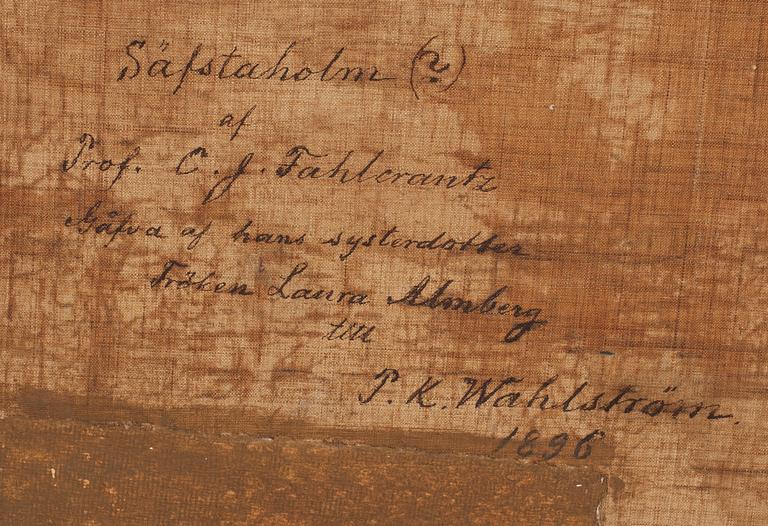 Säfstaholm (?)
af
Prof. C. J. Fahlcrantz
Gåfva af hans systerdotter
Fröken Laura Almberg
till
P. K. Wahlström.
1896